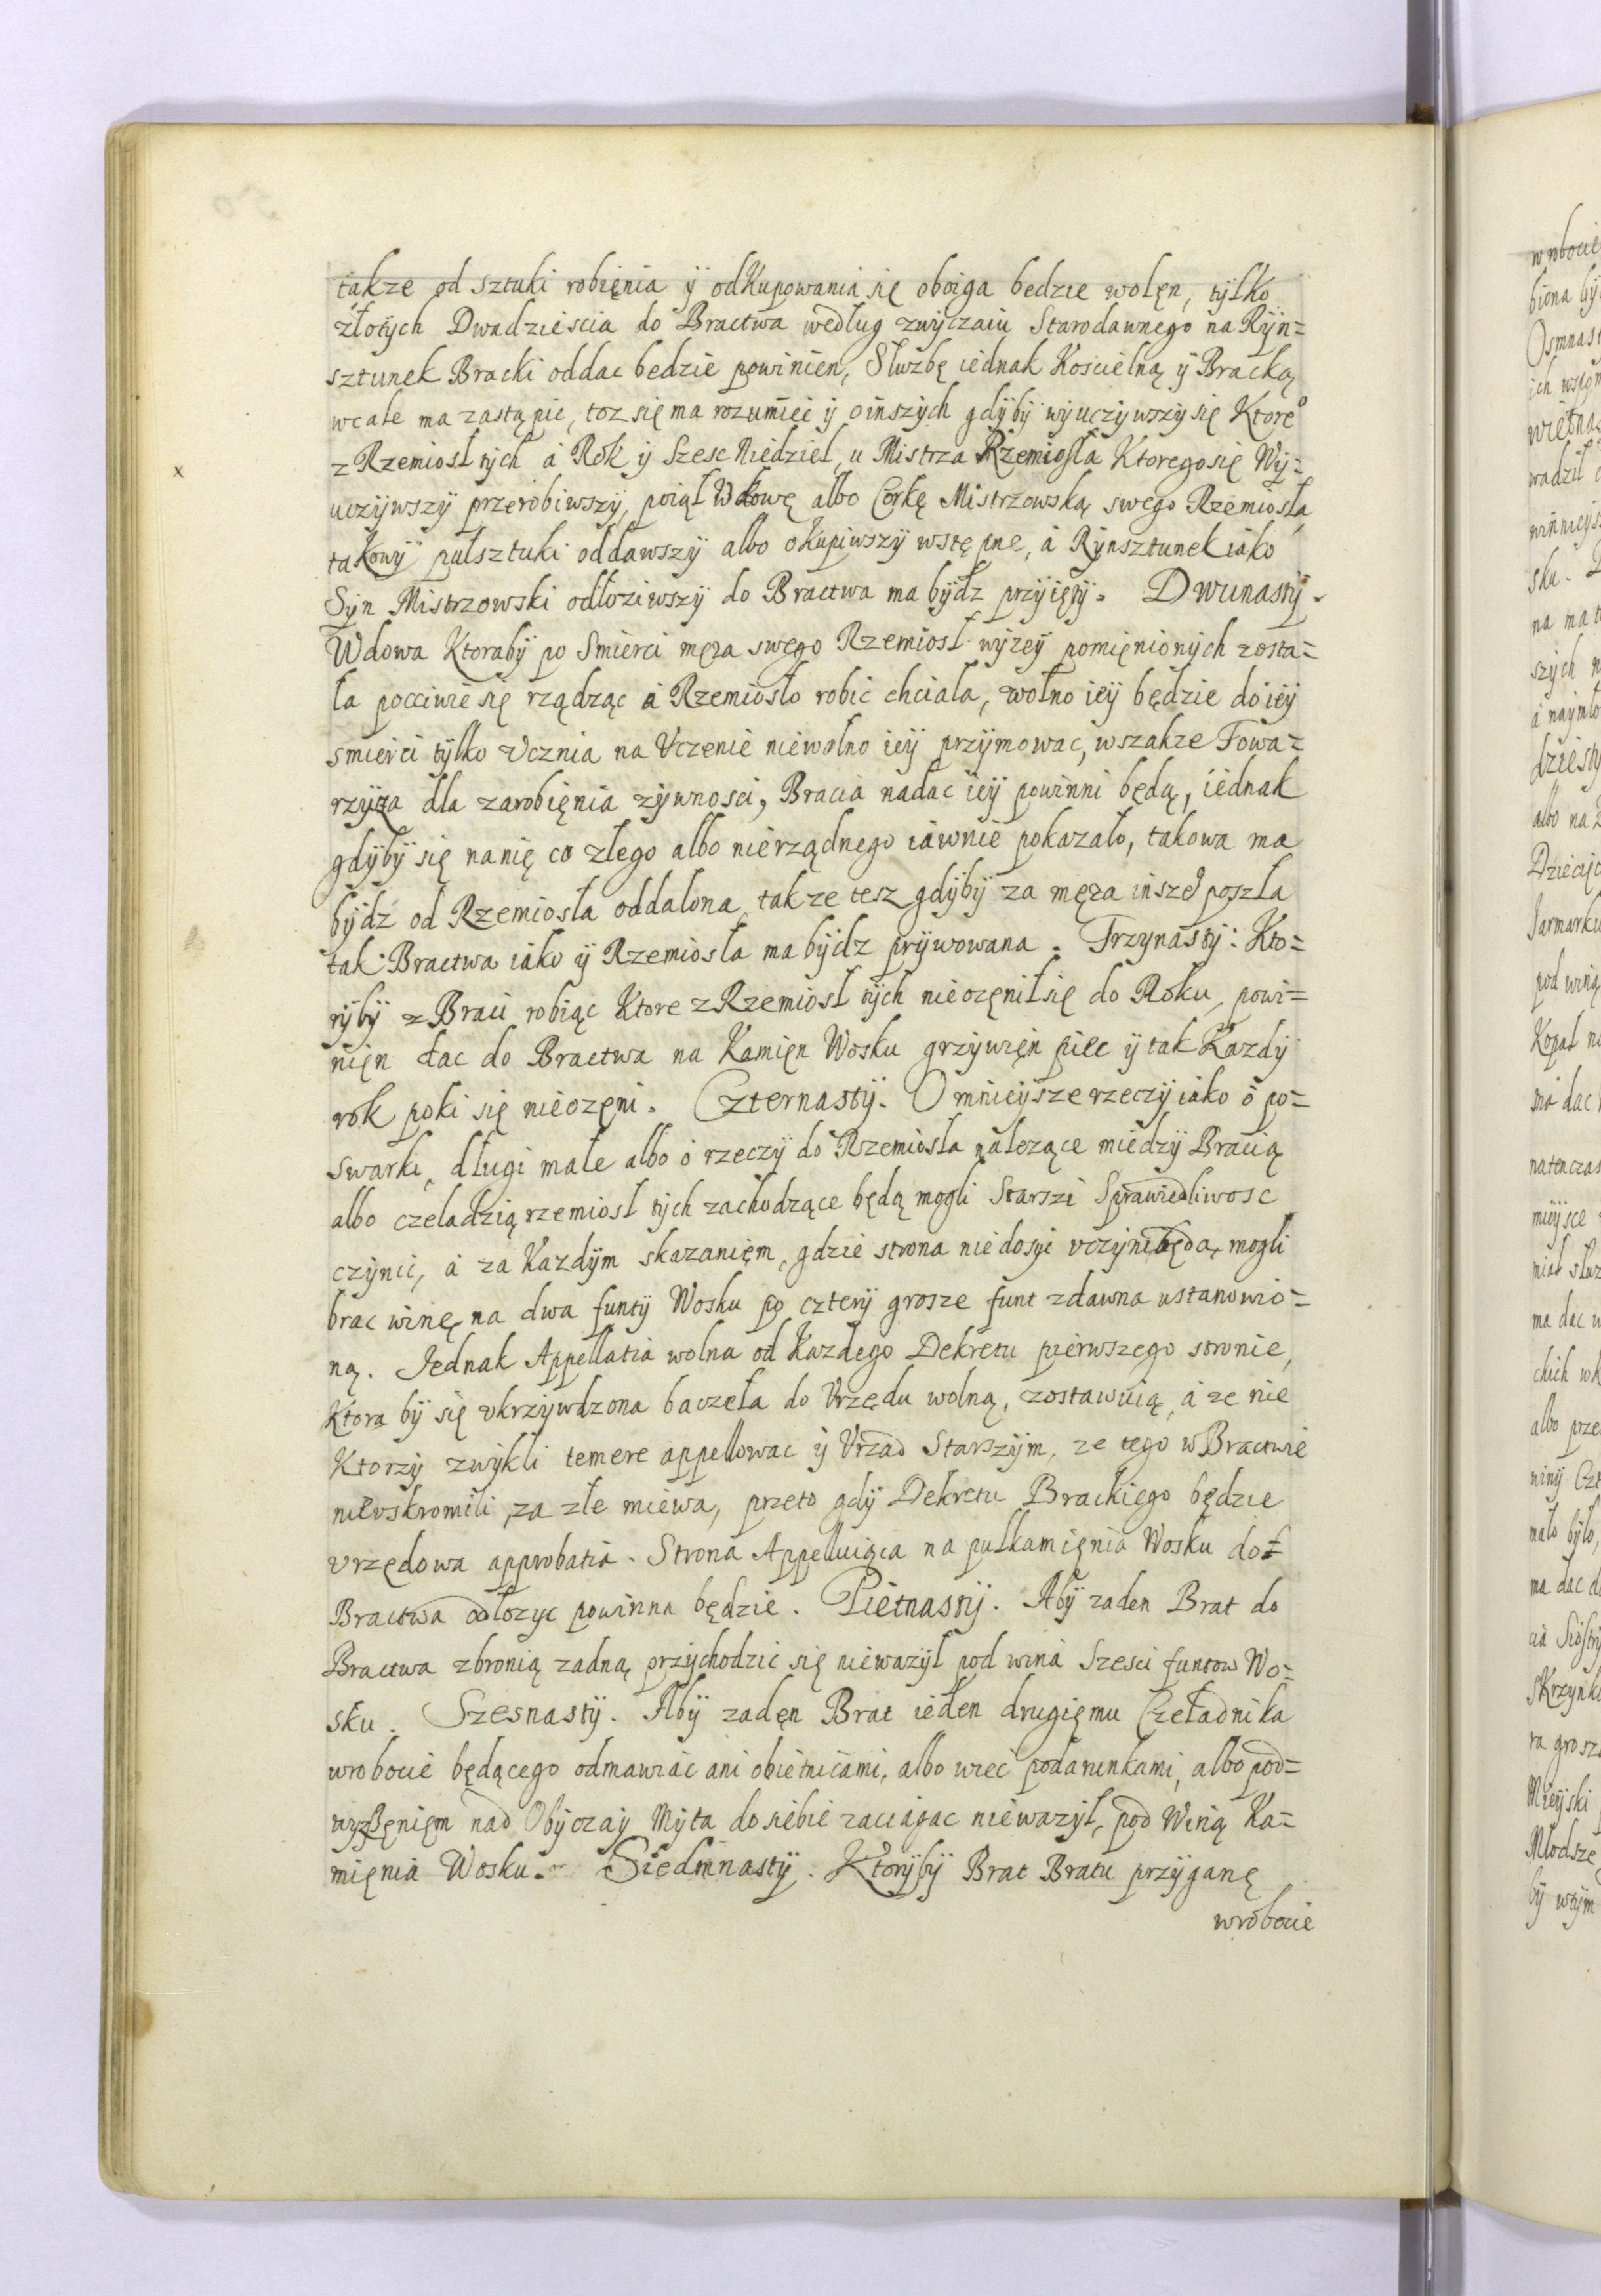 takze od sztuki robięnia ÿ odKupowania się oboiga bedzie wolęn, tÿlko
złotÿch Dwadziescia do Bractwa według zwÿczaiu Starodawnego na Rÿn=
sztunek Bracki oddac bedzie powinien, Słuzbę iednak Koscielną ÿ Bracką
wcale ma zastąpic, toz się ma rozumiec ÿ oinszÿch gdÿbÿ wÿuczÿwszÿ się Ktore°
z Rzemiosł tÿch á Rok ÿ Szesc Niedziel, u Mistrza Rzemiosła Ktorego się Wÿ=
uczÿwszÿ przerobiwszÿ, poiął Wdowę albo Corkę Mistrzowską swego Rzemiosła,
taKowÿ pułsztuki oddawszÿ albo oKupiwszÿ wstępne, á Rÿnsztunek iáko
Sÿn Mistrzowski odłoziwszÿ do Bractwa ma bÿdz przÿięтÿ. Dwunastÿ.
Wdowa Ktorabÿ po Smierci męza swego Rzemiosł wÿzeÿ pomięnionÿch zosta=
ła pocciwie się rządząc á Rzemiosło robic chciała, wolno ieÿ będzie do ieÿ
smierci tÿlko Vcznia na Vczenie niewolno ieÿ przÿmowac, wszakze Towa=
rzÿsza dla zarobięnia zÿwnosci, Bracia nadac ieÿ powinni będą, iednak
gdÿbÿ się nanię co złego albo nierządnego iáwnie pokazało, takowa ma
bÿdź od Rzemiosła oddalona, takze tesz gdÿbÿ za męza insze° poszła
tak Bractwa iako ÿ Rzemiosła ma bÿdz prÿwowana. Trzynastÿ: Kto=
rÿbÿ z Braci robiąc Ktore z Rzemiosł tÿch nieozęnił się do Roku, powi=
nięn dac do Bractwa na Kamięn Wosku grzÿwięn pięc ÿ tak Kazdÿ
rok poki się nieozęni. Czternastÿ. O mnieÿsze rzeczÿ iáko ó po=
swarki, długi małe albo ó rzeczÿ do Rzemiosła nalezące miedzÿ Bracią
albo czeladzią rzemiosł tÿch zachodzące będą mogli Starszi Sprawiedliwosc
czÿnic, á za Kazdÿm skazanięm, gdzie strona niedosÿc vczÿni będą mogli
brac winę na dwa funtÿ Wosku po czterÿ grosze funt zdawna ustanowio=
ną. Iednak Appellatia wolna od Kazdego Dekretu pierwszego stronie,
Ktora bÿ się vkrzÿwdzona baczeła do Vrzędu wolną, zostawuią, á ze nie
Ktorzÿ zwÿkli temere appellowac ÿ Vrzad Starszÿm, ze tego w Bractwie
nievskromili, za złe miewa, przeto gdÿ Dekretu Brackiego będzie
vrzędowa approbatia. Strona Appelluiąca na pułkamięnia Wosku do=
Bractwa odłozyc powinna będzie. Piętnastÿ. Abÿ zaden Brat do
Bractwa zbronią zadną przÿchodzic się niewazÿł pod wina Szesci funtow Wo=
sku. Szesnastÿ. Abÿ zadęn Brat ieden drugięmu Czeladnika
wrobocie będącego odmawiác ani obietnicami, albo wiec podarunkami, albo pod=
wyzßęnięm nad Obÿczaÿ Mÿta dosiebie zaciągac niewazÿł, pod Winą Ka=
mięnia Wosku. Siedmnastÿ. Ktorÿbÿ Brat Bratu przÿganę
wrobocie